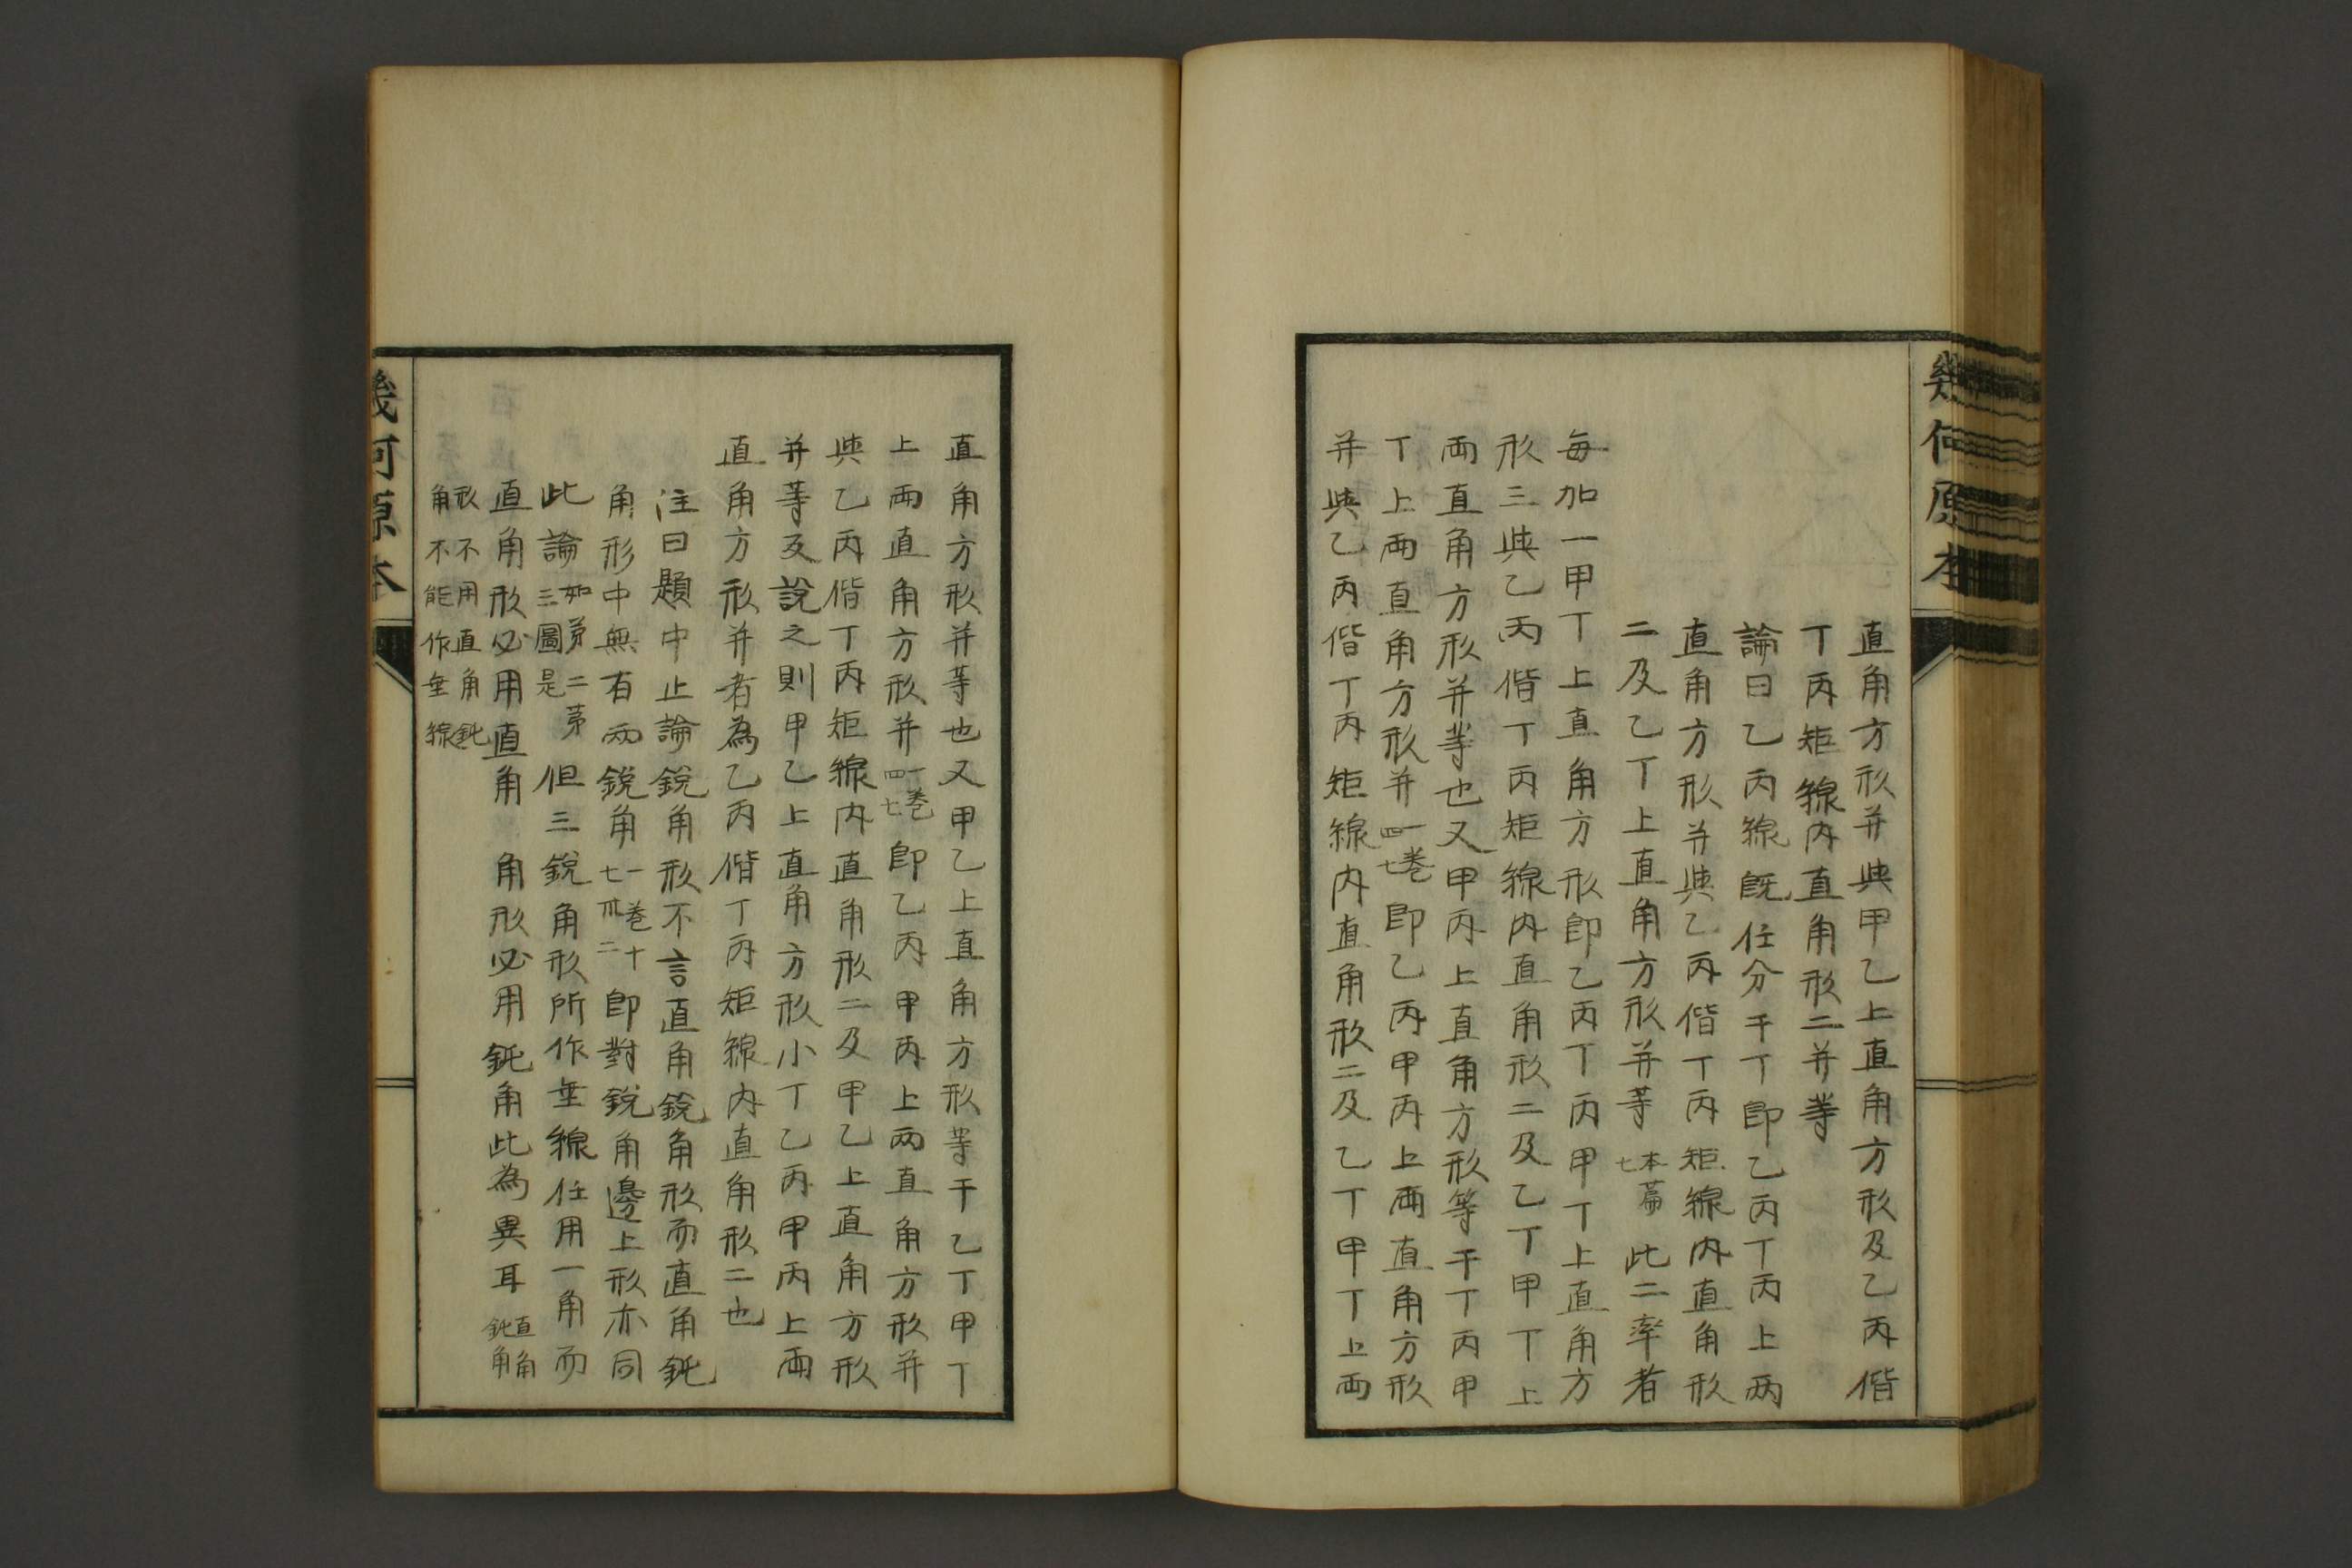 幾何原本
直角方形并與甲乙上直角方形及乙丙偕
丁丙矩線内直角形二并等
論曰乙丙線既任分于丁即乙丙丁丙上兩
直角方形并與乙丙偕丁丙矩線内直角形
二及乙丁上直角方形并等本篇七此二率者
每加一甲丁上直角方形即乙丙丁丙甲丁上直角方
形三與乙丙偕丁丙矩線内直角形二及乙丁甲丁上
兩直角方形并等也又甲丙上直角方形等于丁丙甲
丁上兩直角方形并一卷四七即乙丙甲丙上兩直角方形
并與乙丙偕丁丙矩線内直角形二及乙丁甲丁上兩
直角方形并等也又甲乙上直角方形等于乙丁甲丁
上兩直角方形并一卷四七即乙丙甲丙上兩直角方形并
與乙丙偕丁丙矩線内直角形二及甲乙上直角方形
并等反說之則甲乙上直角方形小于乙丙甲丙上兩
直角方形并者為乙丙偕丁丙矩線内直角形二也
注曰題中止論銳角形不言直角銳角形而直角鈍
角形中無有兩銳角一卷十七卅二即對銳角邊上形亦同
此論如第二第三圖是但三銳角形所作垂線任用一角而
直角形必用直角 角形必用鈍角此為異耳直角鈍角
形不用直角鈍角不能作垂線
幾何原本